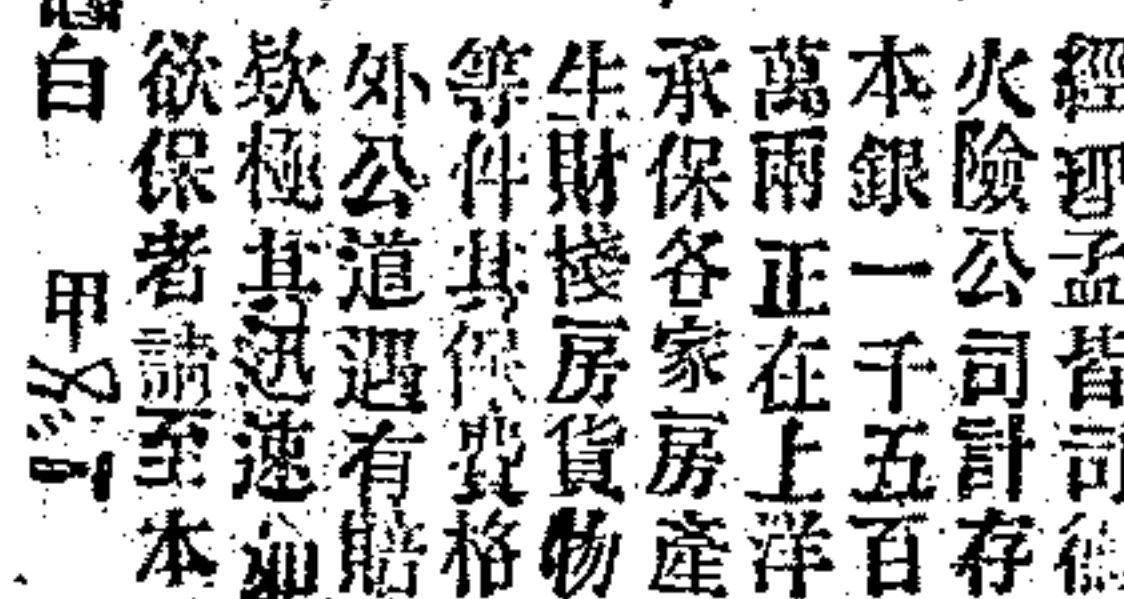 經理孟皆司德
火險公司計存
本銀一千五百
萬兩正在上洋
承保各家房產
生財棧房貨物
等件其保費格
外公道遇有賠
欵極其迅速如
欲保者請至本
白 甲